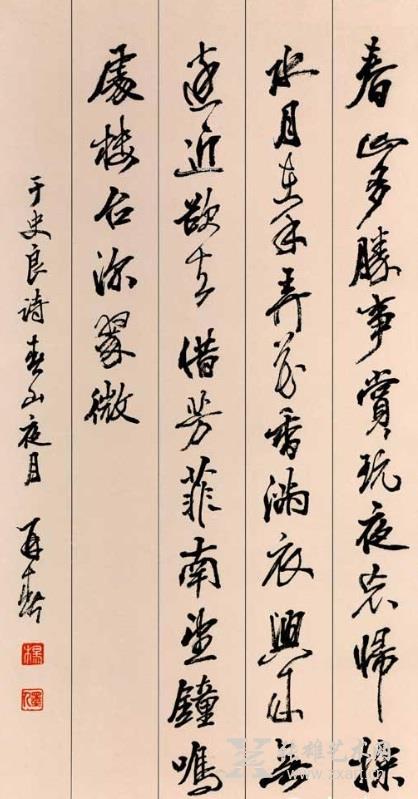 春山多勝事賞玩夜忘帰掬
水月在手弄花香满衣興来無
遠近欲去惜芳菲南望鐘鳴
處楼台深翠微
于史良诗春山夜月